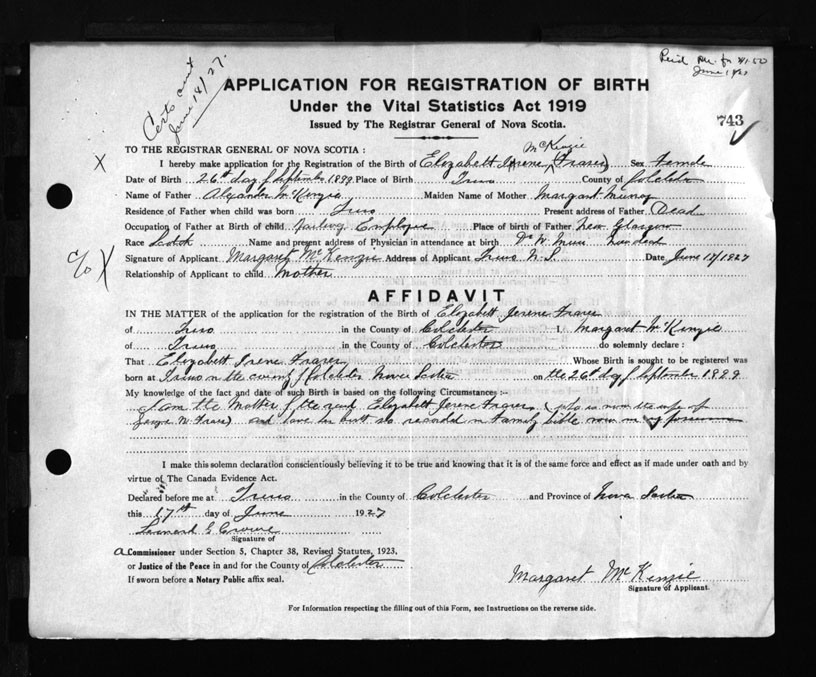 Certs sent
June 18/27.
Paid
June 17/27
APPLICATION FOR REGISTRATION OF BIRTH
Under the Vital Statistics Act 1919
Issued by The Registrar General of Nova Scotia.
743
TO THE REGISTRAR GENERAL OF NOVA SCOTIA :
McKenzie
X I hereby make application for the Registration of the Birth of Elizabeth Irene (Fraser) Sex Female
Date of Birth 26th day of September 1899 Place of Birth Truro County of Colchester
Name of Father Alexander McKenzie Maiden Name of Mother Margaret Munroe
Residence of Father when child was born Truro Present address of Father Dead
Occupation of Father at Birth of child Railway Employee Place of birth of Father New Glasgow
Race Scotch Name and present address of Physician in attendance at birth Dr W. Muir now dead
Signature of Applicant Margaret McKenzie Address of Applicant Truro N.S. Date June 17/1927
Relationship of Applicant to child Mother
% X
AFFIDAVIT
IN THE MATTER of the application for the registration of the Birth of Elizabeth Jerene Fraser
of Truro in the County of Colchester I, Margaret McKenzie
of Truro in the County of Colchester do solemnly declare :
That Elizabeth Irene Fraser Whose Birth is sought to be registered was
born at Truro in the county of Colchester Nova Scotia on the 26th day of September 1899
My knowledge of the fact and date of such Birth is based on the following Circumstances :-
I am the Mother of the said Elizabeth Jerene Fraser, (who is now the wife of
George W Fraser) and have her birth recorded in Family bible now in my possession
I make this solemn declaration conscientiously believing it to be true and knowing that it is of the same force and effect as if made under oath and by
virtue of The Canada Evidence Act.
Declared before me at Truro in the County of Colchester and Province of Nova Scotia
this 17th day of June 1927
Leonard G Crowe
Signature of
a Commissioner under Section 5, Chapter 38, Revised Statutes, 1923,
or Justice of the Peace in and for the County of Colchester
If sworn before a Notary Public affix seal.
Margaret McKenzie
Signature of Applicant.
For Information respecting the filling out of this Form, see Instructions on the reverse side.